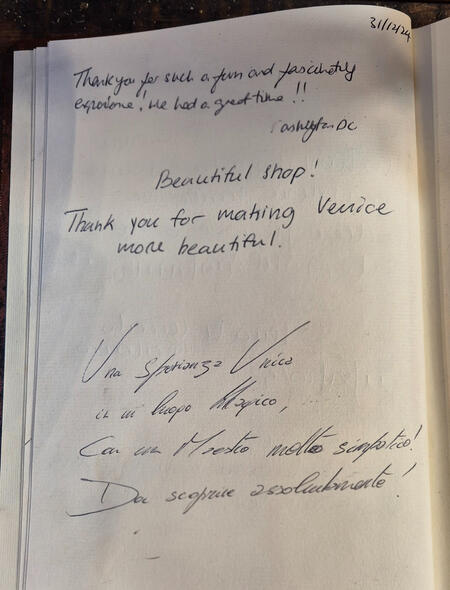 31/12/24
Thank you for such a fun and fascinating
experience! We had a great time!!
Washington DC
Beautiful shop!
Thank you for making Venice
more beautiful.
Una sperienza Unica
in un luogo Magico,
Con un Maestro molto simpatico!
Da scoprire assolutamente!